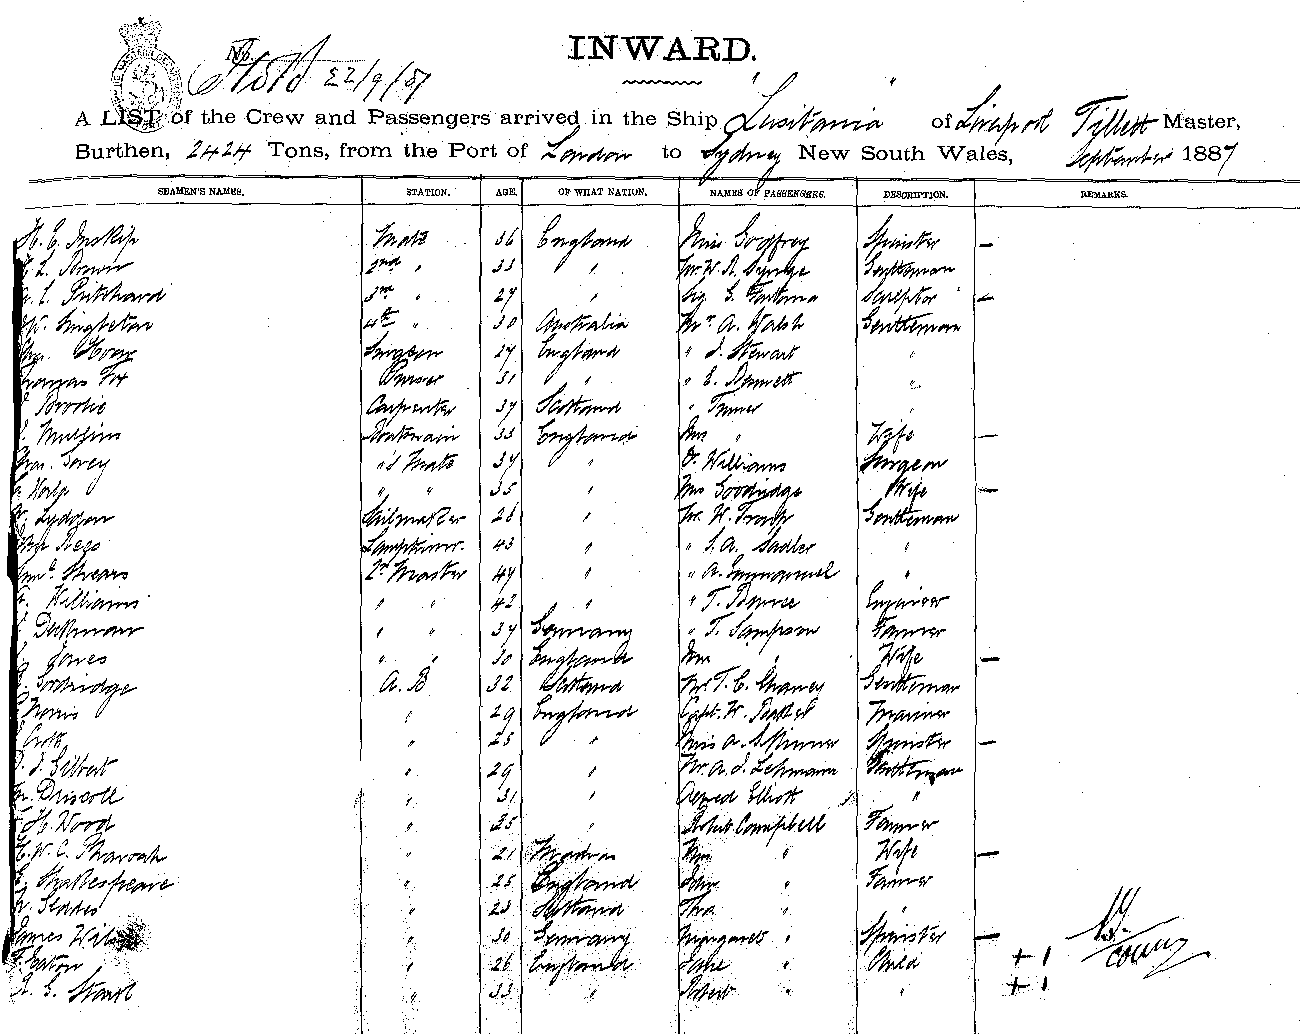 INWARD.
No.
22/9/87
A LIST of the Crew and Passengers arrived in the Ship "Lusitania" of Liverpool Tillett Master,
Burthen, 2424 Tons, from the Port of London to Sydney New South Wales, September 1887
SEAMEN'S NAMES. STATION. AGE. OF WHAT NATION. NAMES OF PASSENGERS. DESCRIPTION. REMARKS.
H. C. Inskip Mate 36 England Miss Godfrey Spinster —
L. Brown 2nd " 33 " Mr. W. A. Gentleman
L. Pritchard 3rd " 27 " Sig. Sculptor —
W. Singleton 4th " 30 Australia Mr. A. Walsh Gentleman
Surgeon 27 England " J. Stewart "
Thomas Fox Purser 31 " " E. Bennett "
Brodie Carpenter 37 Scotland " Turner "
Mullins Boatswain 33 England Mrs " Wife —
Torey "s Mate 34 " Dr. Williams Surgeon
" " 35 " Mrs Goodridge Wife —
Lyddon Sailmaker 26 " Mr. W. Gentleman
Rees 43 " " S. A. Sadler "
Shears Qr. Master 44 " " A. Emmanuel "
Williams " " 42 " " T. Engineer
Deekman " " 37 Germany " T. Sampson Farmer
Jones " " 30 England Mrs " Wife —
Goodridge A. B 32 Scotland Mr. T. C. Gentleman
Norris " 29 England Capt. W. Mariner
" 23 " Miss A. Skinner Spinster —
J. Gilbert " 29 " Mr. A. J. Lehmann Gentleman
Driscoll " 31 " Alfred Elliott "
H. Wood " 25 " Robert Campbell Farmer
W. C. Pharoah " 21 Madras Mrs " Wife —
Shakespeare " 25 England John " Farmer
Geddes " 23 Scotland Thos " "
James " 30 Germany Margaret " Spinster —
" 26 England Jane " Child + 1
" 33 " Robert " " + 1